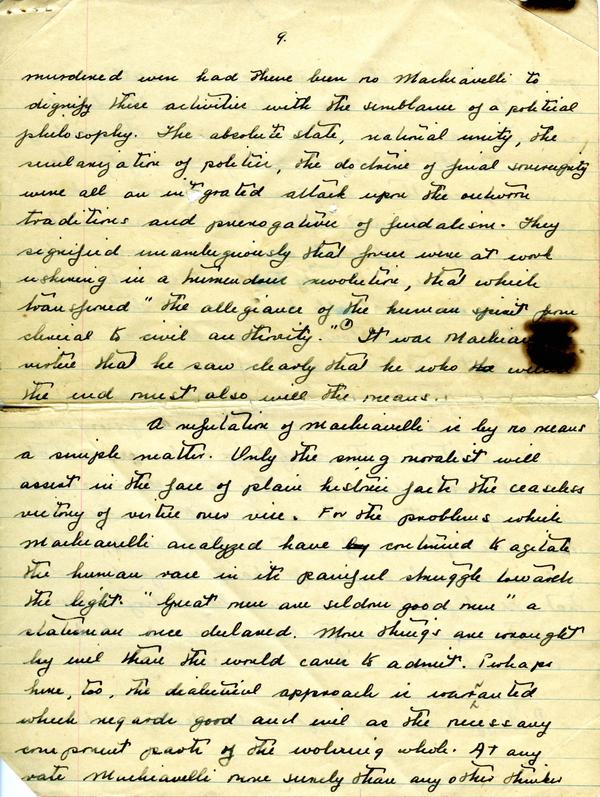 9.
murdered even had there been no Machiavelli to
dignify these activities with the semblance of a political
philosophy. The absolute state, national unity, the
secularization of politics, the doctrine of final sovereignty
were all an integrated attack upon the outworn
traditions and prerogatives of feudalism. They
signified unambiguously that forces were at work
ushering in a tremendous revolution, that which
transferred "the allegiance of the human spirit from
clerical to civil authority." ① It was
virtue that he saw clearly that he who
the end must also will the means.
A refutation of Machiavelli is by no means
a simple matter. Only the smug moralist will
assert in the face of plain historic facts the ceaseless
victory of virtue over vice. For the problems which
Machiavelli analyzed have continued to agitate
the human race in its painful struggle towards
the light. "Great men are seldom good men" a
statesman once declared. More things are wrought
by evil than the world cares to admit. Perhaps
here, too, the dialectical approach is warranted
which regards good and evil as the necessary
component parts of the evolving whole. At any
rate Machiavelli more surely than any other thinker